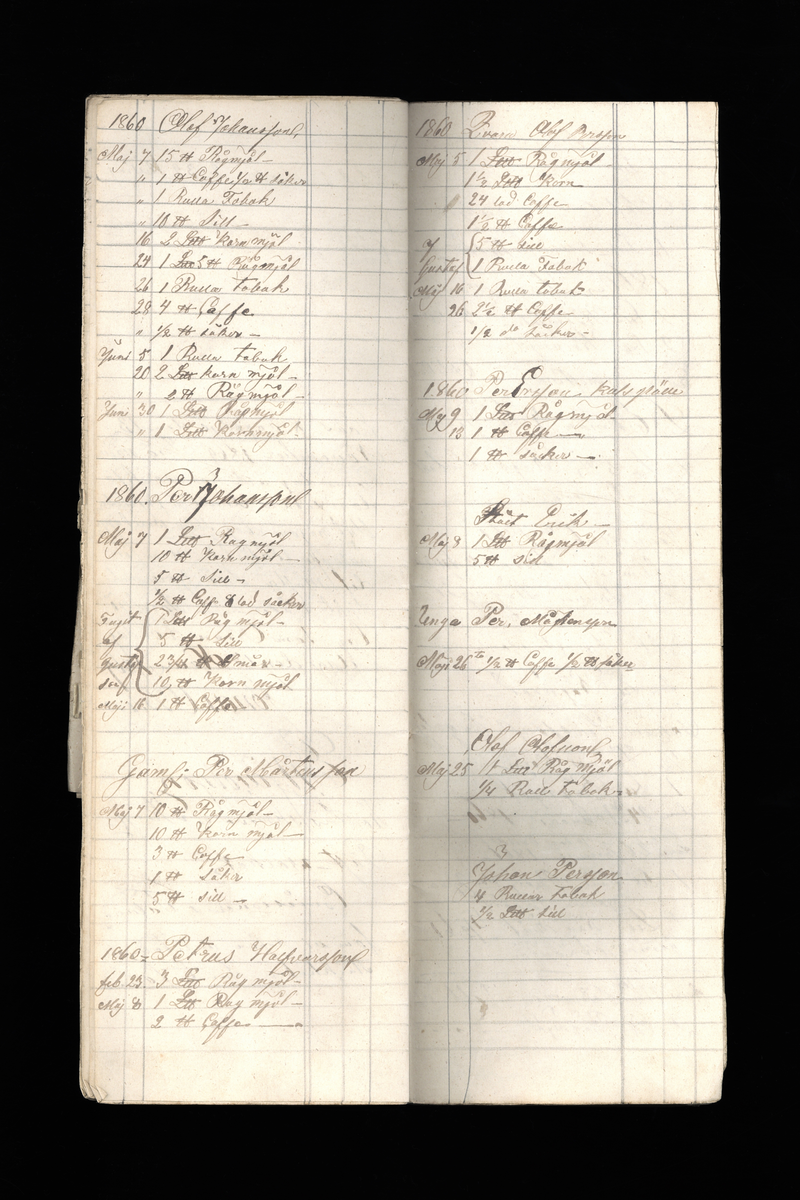 1860 Olof Johansson
Maj 7 15 ℔ Rågmjöl
" 1 ℔ Caffe 1/2 ℔ såcker
" 1 Rulla Tobak
" 10 ℔ Sill
16 2 L℔ Kornmjöl
24 1 L℔ 5 ℔ Rågmjöl
26 1 Rulla tobak
28 4 ℔ Caffe
" 1/2 ℔ såker
Juni 5 1 Rulla tobak
20 2 L℔ korn mjöl
" 2 ℔ Rågmjöl
Juni 30 1 L℔ Rågmjöl
" 1 L℔ Kornmjöl
1860. Per Johansson
Maj 7 1 L℔ Ragmjöl
10 ℔ Korn mjöl
5 ℔ Sill
1/2 ℔ Caff 8 lod såcker
Tagit 1 L℔ Råg mjöl
af 5 ℔ Sill
Gustaf 23/4 ℔ Smör
son 10 ℔ Korn mjöl
Maji 16 1 ℔ Caffe
Gamls Per Mårtensson
Maj 7 10 ℔ Rågmjöl
10 ℔ Korn mjöl
3 ℔ Caffe
1 ℔ såker
5 ℔ sill
1860 Petrus Halfvarsson
feb 23 3 L℔ Råg mjöl
Maj 8 1 L℔ Rag mjöl
2 ℔ Caffe
1860 Olof Persson
Maj 5 1 L℔ Rågmjöl
1 1/2 L℔ Korn
" 24 lod Caffe
1 1/2 ℔ Caffe
5 ℔ sill
Gustaf 1 Rulla Tobak
Maj 16 1 Rulla tobak
26 2 1/2 ℔ Caffe
1/2 do såcker
1860 Per Ersson
Maj 9 1 L℔ Rågmjöl
13 1 ℔ Caffe
1 ℔ såcker
Erik
Maj 8 1 L℔ Rågmjöl
5 ℔ sill
Unga Per Mårtensson
Maji 26 1/2 ℔ Caffe 1/2 ℔ såker
Olof Olofsson
Maj 25 1 L℔ Råg mjöl
1/4 Rull tobak
Johan Persson
4 Rullar tobak
1/2 L℔ sill